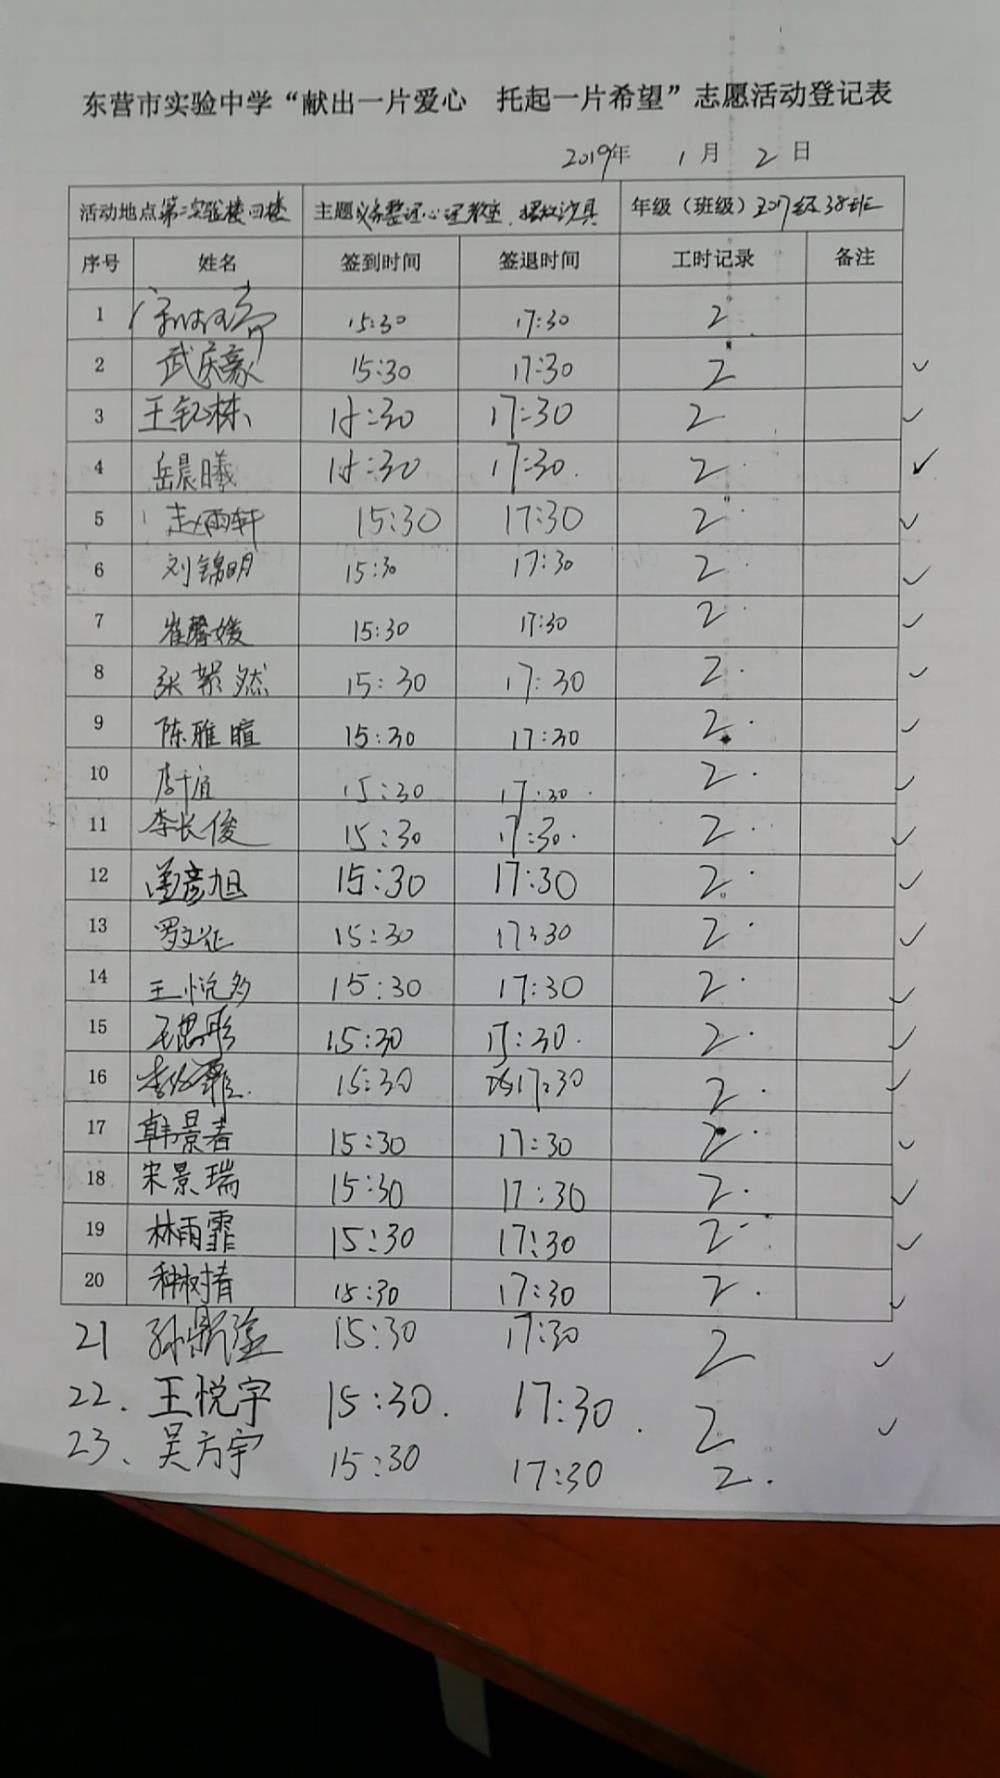 东营市实验中学“献出一片爱心 托起一片希望”志愿活动登记表
2019年 1月 2日
活动地点第二实验楼四楼 主题义务整理心理教室、摆放沙具 年级（班级）2017级38班
序号 姓名 签到时间 签退时间 工时记录 备注
1 15:30 17:30 2
2 武庆豪 15:30 17:30 2 ✓
3 王钇栋 15:30 17:30 2 ✓
4 岳晨曦 15:30 17:30 2 ✓
5 赵雨轩 15:30 17:30 2 ✓
6 刘锦明 15:30 17:30 2 ✓
7 崔馨媛 15:30 17:30 2 ✓
8 张絜然 15:30 17:30 2 ✓
9 陈雅暄 15:30 17:30 2 ✓
10 15:30 17:30 2 ✓
11 李长俊 15:30 17:30 2 ✓
12 彦旭 15:30 17:30 2 ✓
13 罗文 15:30 17:30 2 ✓
14 王悦 15:30 17:30 2 ✓
15 王思彤 15:30 17:30 2 ✓
16 李 15:30 17:30 2 ✓
17 韩景春 15:30 17:30 2 ✓
18 宋景瑞 15:30 17:30 2 ✓
19 林雨霏 15:30 17:30 2 ✓
20 种树青 15:30 17:30 2 ✓
21 孙 15:30 17:30 2 ✓
22. 王悦宇 15:30. 17:30. 2 ✓
23、吴方宇 15:30 17:30 2.